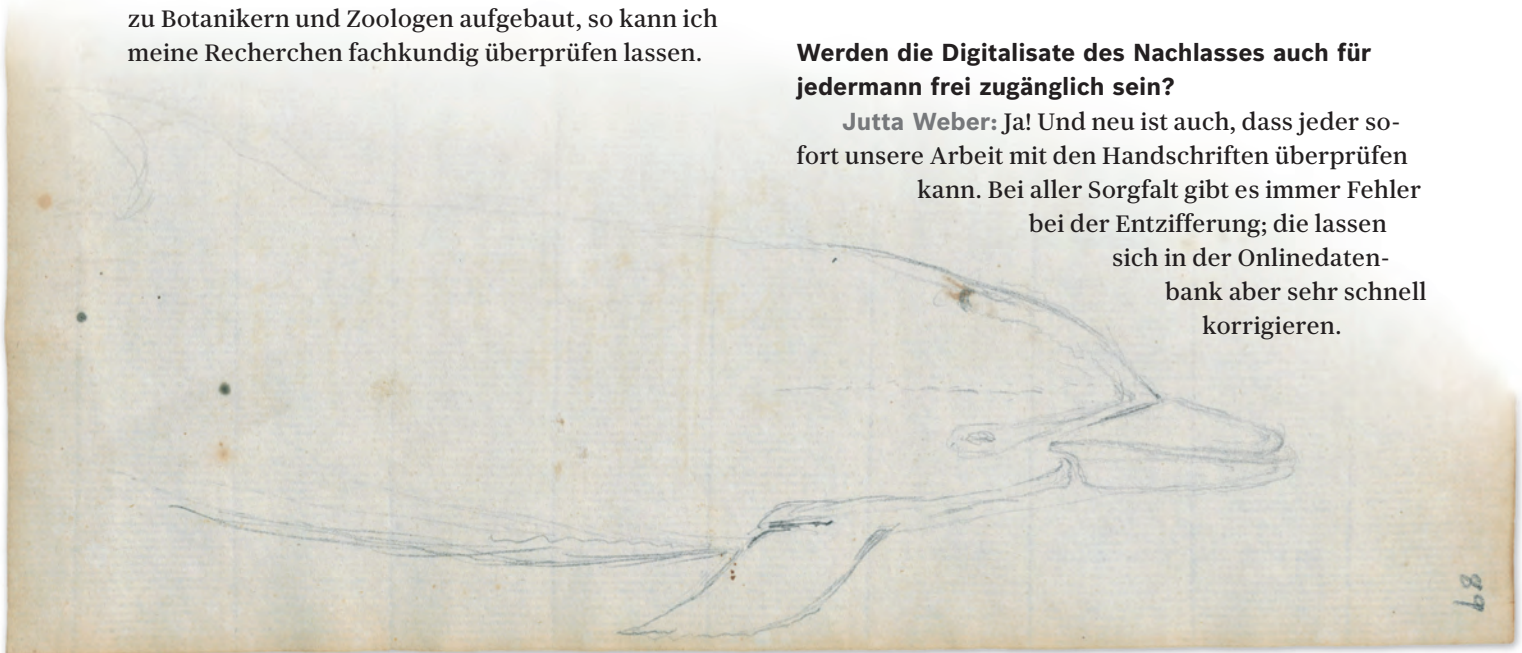 zu Botanikern und Zoologen aufgebaut, so kann ich
meine Recherchen fachkundig überprüfen lassen.
Werden die Digitalisate des Nachlasses auch für
jedermann frei zugänglich sein?
Jutta Weber: Ja! Und neu ist auch, dass jeder so-
fort unsere Arbeit mit den Handschriften überprüfen
kann. Bei aller Sorgfalt gibt es immer Fehler
bei der Entzifferung; die lassen
sich in der Onlinedaten-
bank aber sehr schnell
korrigieren.